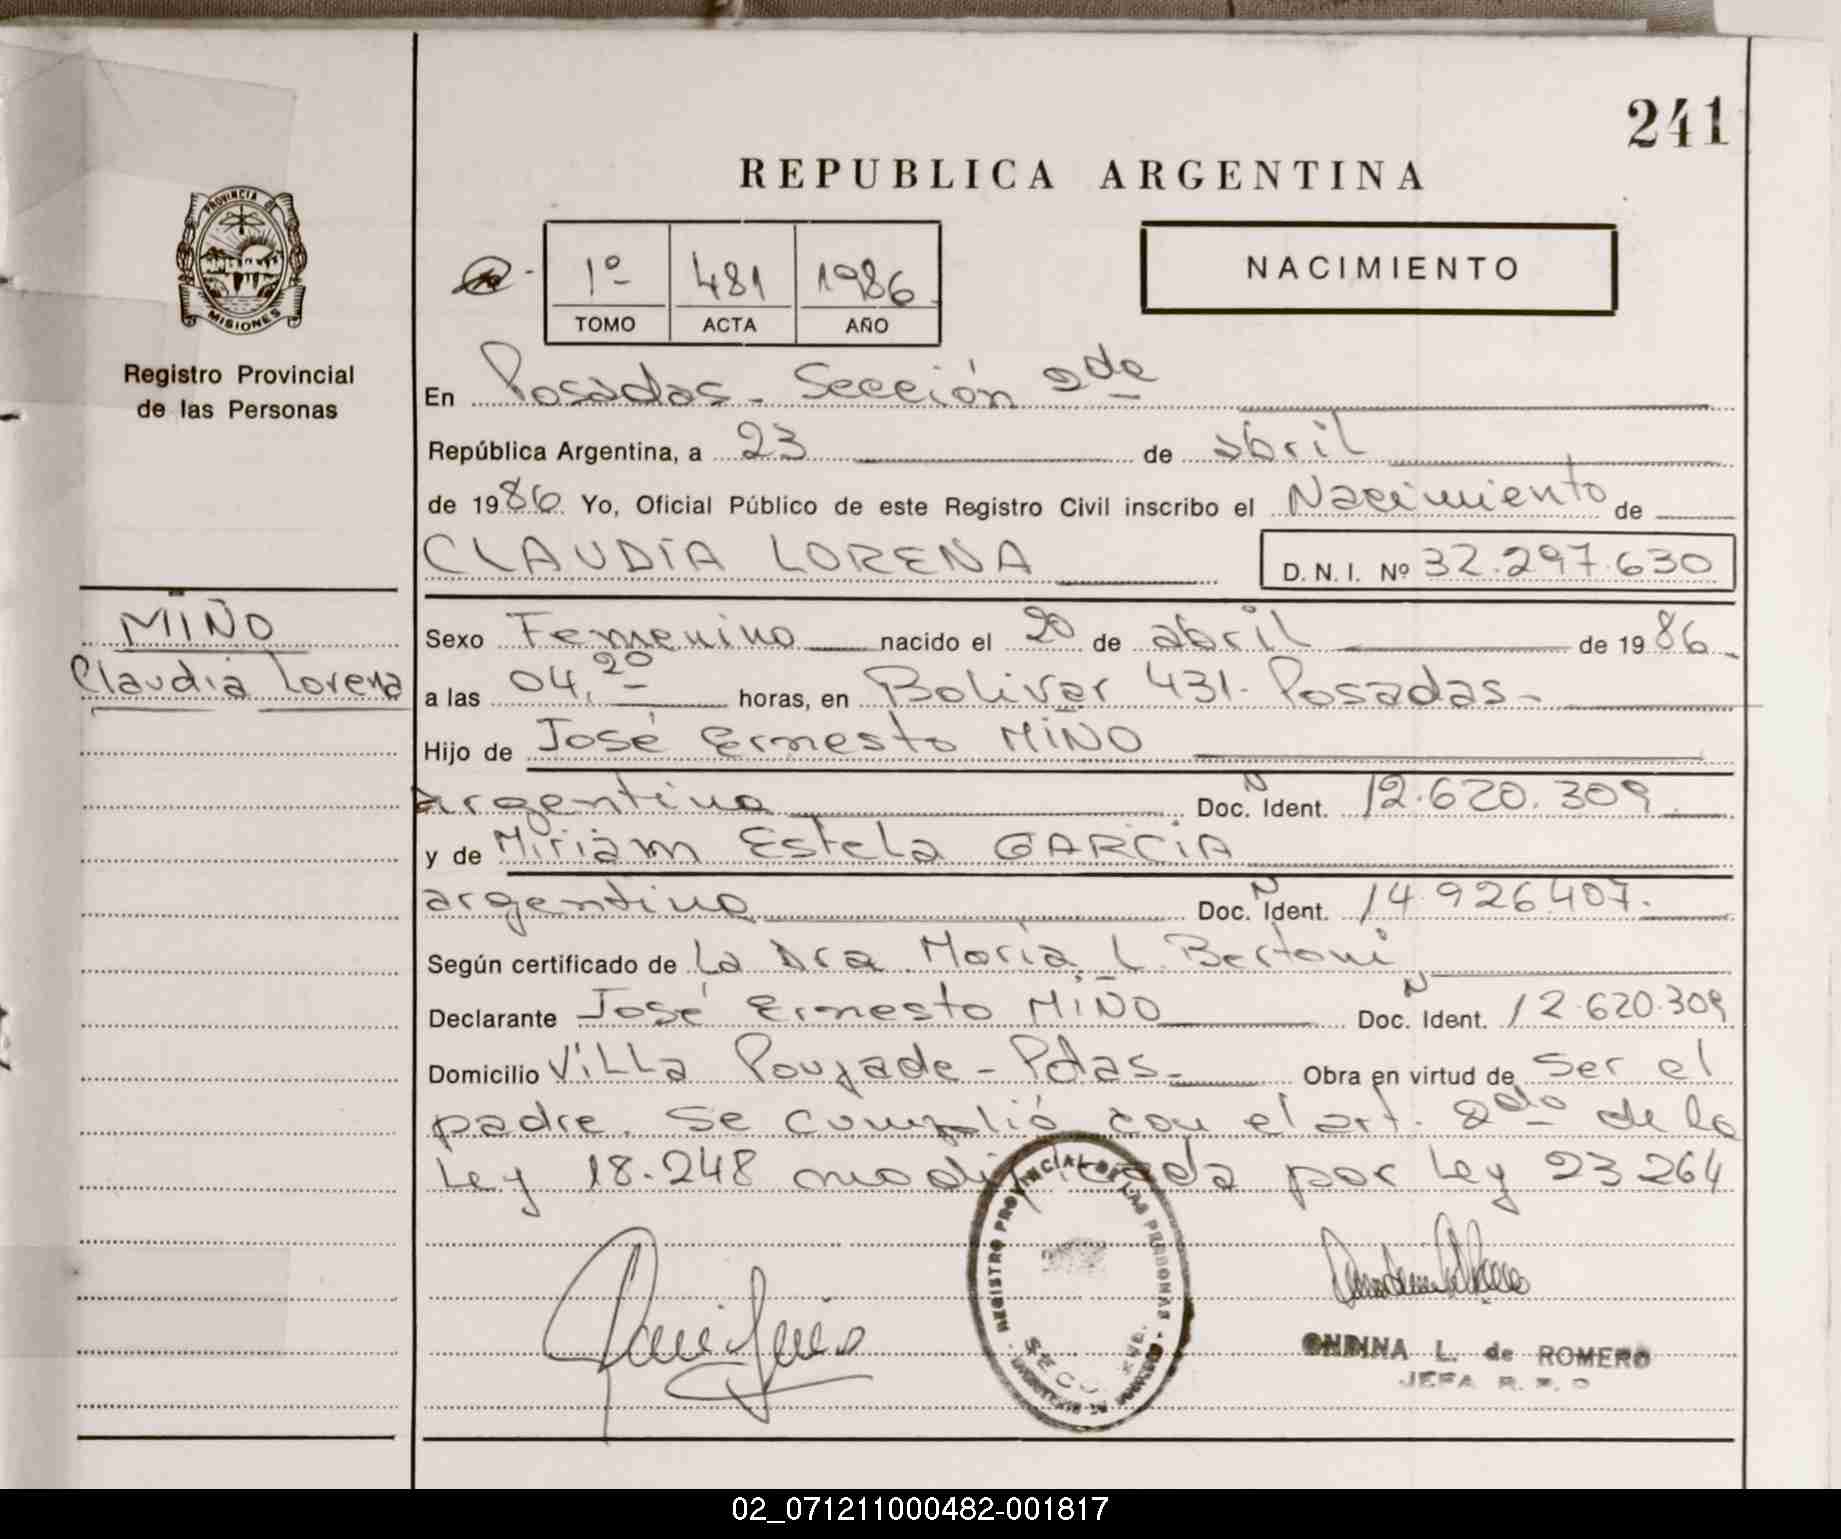 241
REPUBLICA ARGENTINA
PROVINCIA DE
MISIONES
Registro Provincial
de las Personas
1º 481 1986
TOMO ACTA AÑO
NACIMIENTO
En Posadas - Sección 2da
República Argentina, a 23 de abril
de 1986 Yo, Oficial Público de este Registro Civil inscribo el Nacimiento de
CLAUDIA LORENA D. N. I. Nº 32.297.630
MIÑO
Claudia Lorena
Sexo Femenino nacido el 20 de abril de 1986
a las 04,20 horas, en Bolivar 431- Posadas-
Hijo de José Ernesto MIÑO
argentino Doc. Ident. N 12.620.309
y de Miriam Estela GARCIA
argentina Doc. Ident. N 14.926.407.
Según certificado de la Dra. Maria L. Bertoni
Declarante José Ernesto MIÑO Doc. Ident. N 12.620.309
Domicilio Villa Poujade - Pdas- Obra en virtud de ser el
padre. Se cumplió con el art. 2do de la
Ley 18.248 modificada por Ley 23264
REGISTRO PROVINCIAL DE LAS PERSONAS
ONDINA L. de ROMERO
JEFA
02_071211000482-001817